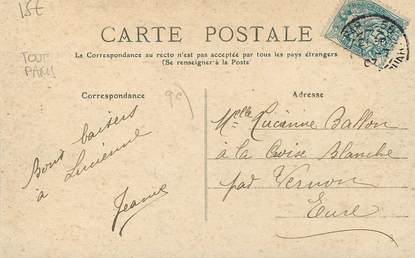 15€
CARTE POSTALE
La Correspondance au recto n'est pas acceptée par tous les pays étrangers
(Se renseigner à la Poste
TOUT
PARIS
Correspondance
Adresse
9e
Bons baisers
à Lucienne
Jeanne
Melle Lucienne Ballon
à la Croix Blanche
par Vernon
Eure